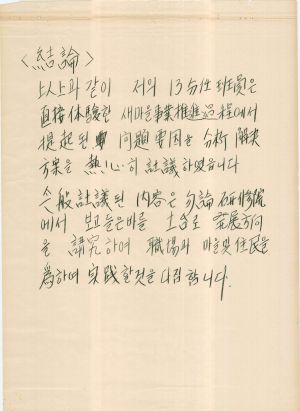 <結論>
以上과 같이 저의 13分任 班員은
直接 体驗한 새마을事業推進過程에서
提起된 問題要因을 分析 解決
方案을 熱心히 討議하였습니다
今般 討議된 內容은 勿論 研修院
에서 보고 들은바를 土台로 発展方向
을 講究하여 職場과 마을및 住民을
為하여 実践할것을 다짐합니다.